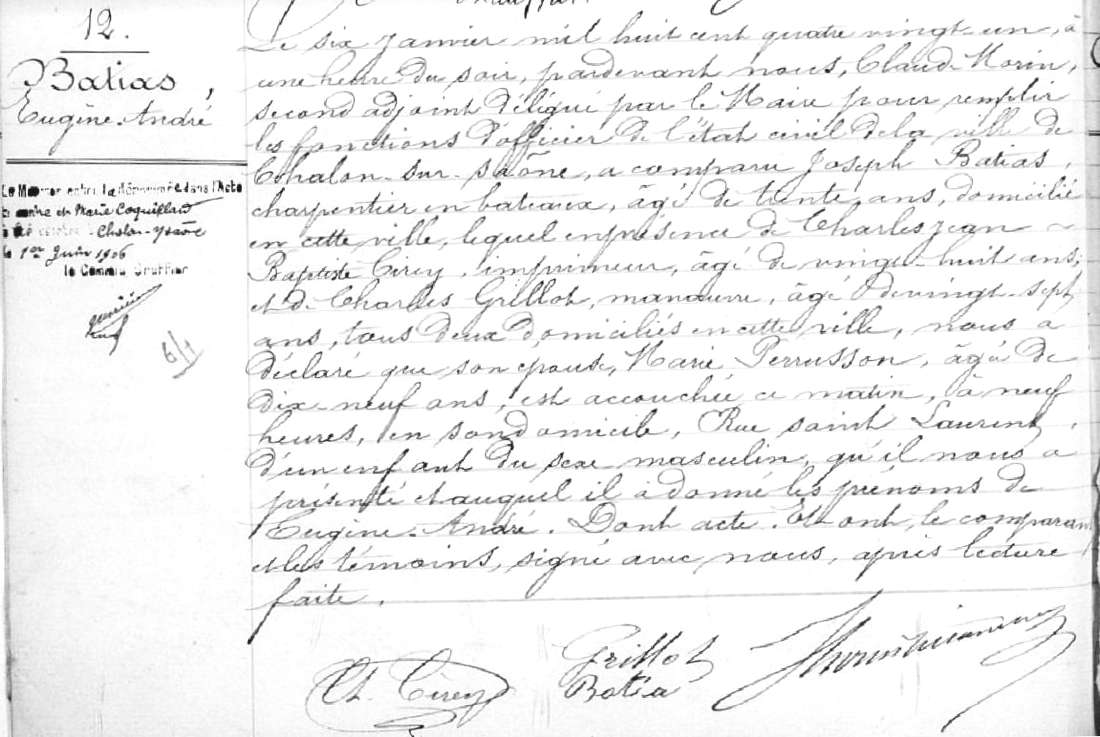 12.
Batias,
Eugène-André
Le Mariage entre le dénommé dans l'Acte
ci contre et Marie Coquillard
a été célébré à Chalon s/Saône
le 1er Juin 1906
le Commis Greffier
6/1
Le six janvier mil huit cent quatre vingt-un, à
une heure du soir, pardevant nous, Claude Morin,
second adjoint délégué par le Maire pour remplir
les fonctions d'officier de l'état civil de la ville de
Chalon-sur-Saône, a comparu Joseph Batias,
charpentier en bateaux, âgé de trente ans, domicilié
en cette ville, lequel en présence de Charles Jean ~
Baptiste Cirey, imprimeur, âgé de vingt-huit ans,
et de Charles Grillot, manœuvre, âgé de vingt-sept
ans, tous deux domiciliés en cette ville, nous a
déclaré que son épouse, Marie Perrusson, âgée de
dix-neuf ans, est accouchée ce matin, à neuf
heures, en son domicile, Rue saint Laurent,
d'un enfant du sexe masculin, qu'il nous a
présenté et auquel il a donné les prénoms de
Eugène-André. Dont acte. Et ont, le comparant
et les témoins, signé avec nous, après lecture
faite.
Grillot
Ch. Cirey
Batia